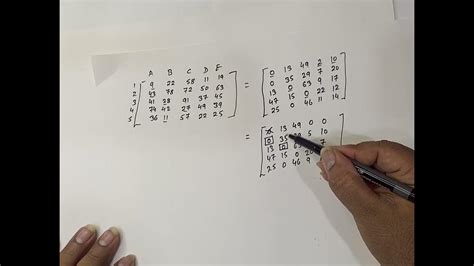 A B C D E
1 9 22 58 11 19 0 13 49 2 10
2 43 78 72 50 63 0 35 29 7 20
3 41 28 91 37 45 = 13 0 63 9 17
4 74 42 27 49 39 47 15 0 22 12
5 36 11 57 22 25 25 0 46 11 14
= 0 13 49 0 0
0 35 5 10
13 0 63 7
47 15 0 20
25 0 46 9